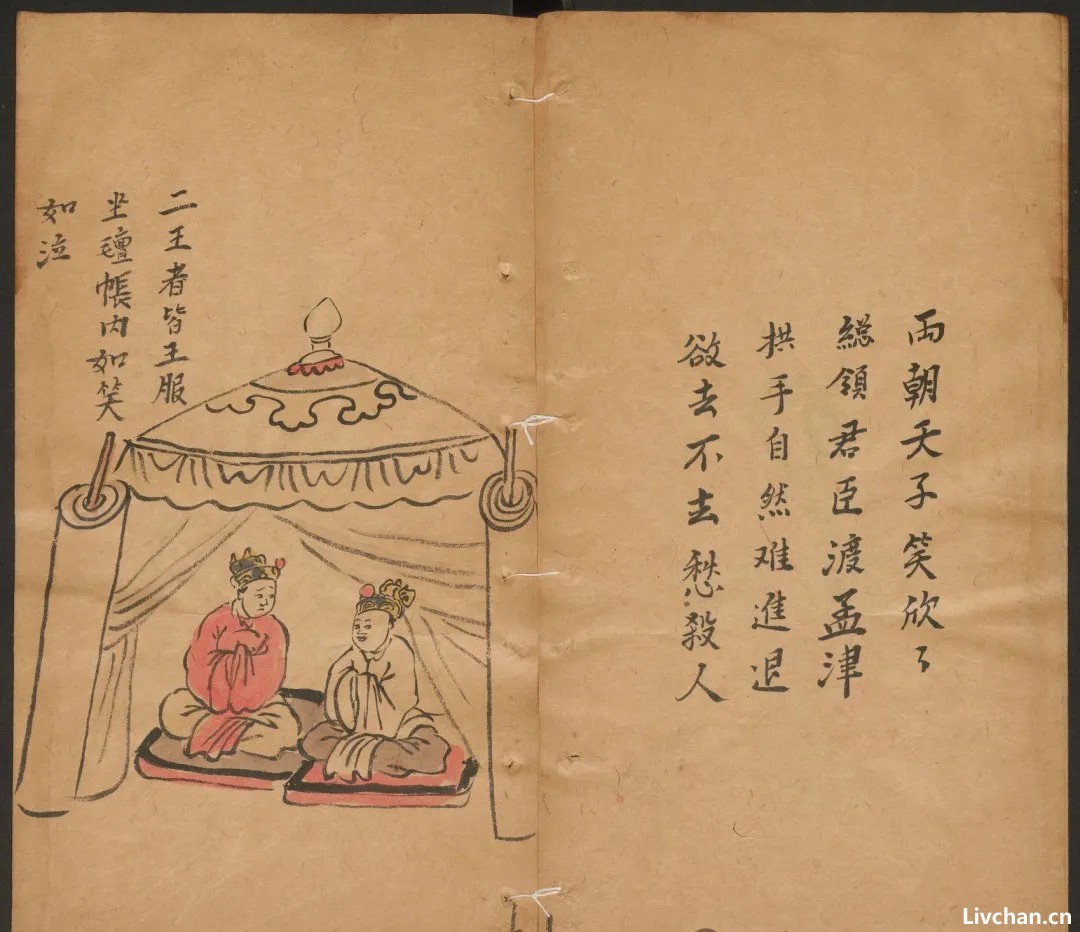 兩朝天子笑欣〻
総領君臣渡孟津
拱手自然难進退
欲去不去愁殺人
二王者皆王服
坐氊帳内如笑
如泣
Livchan.cn